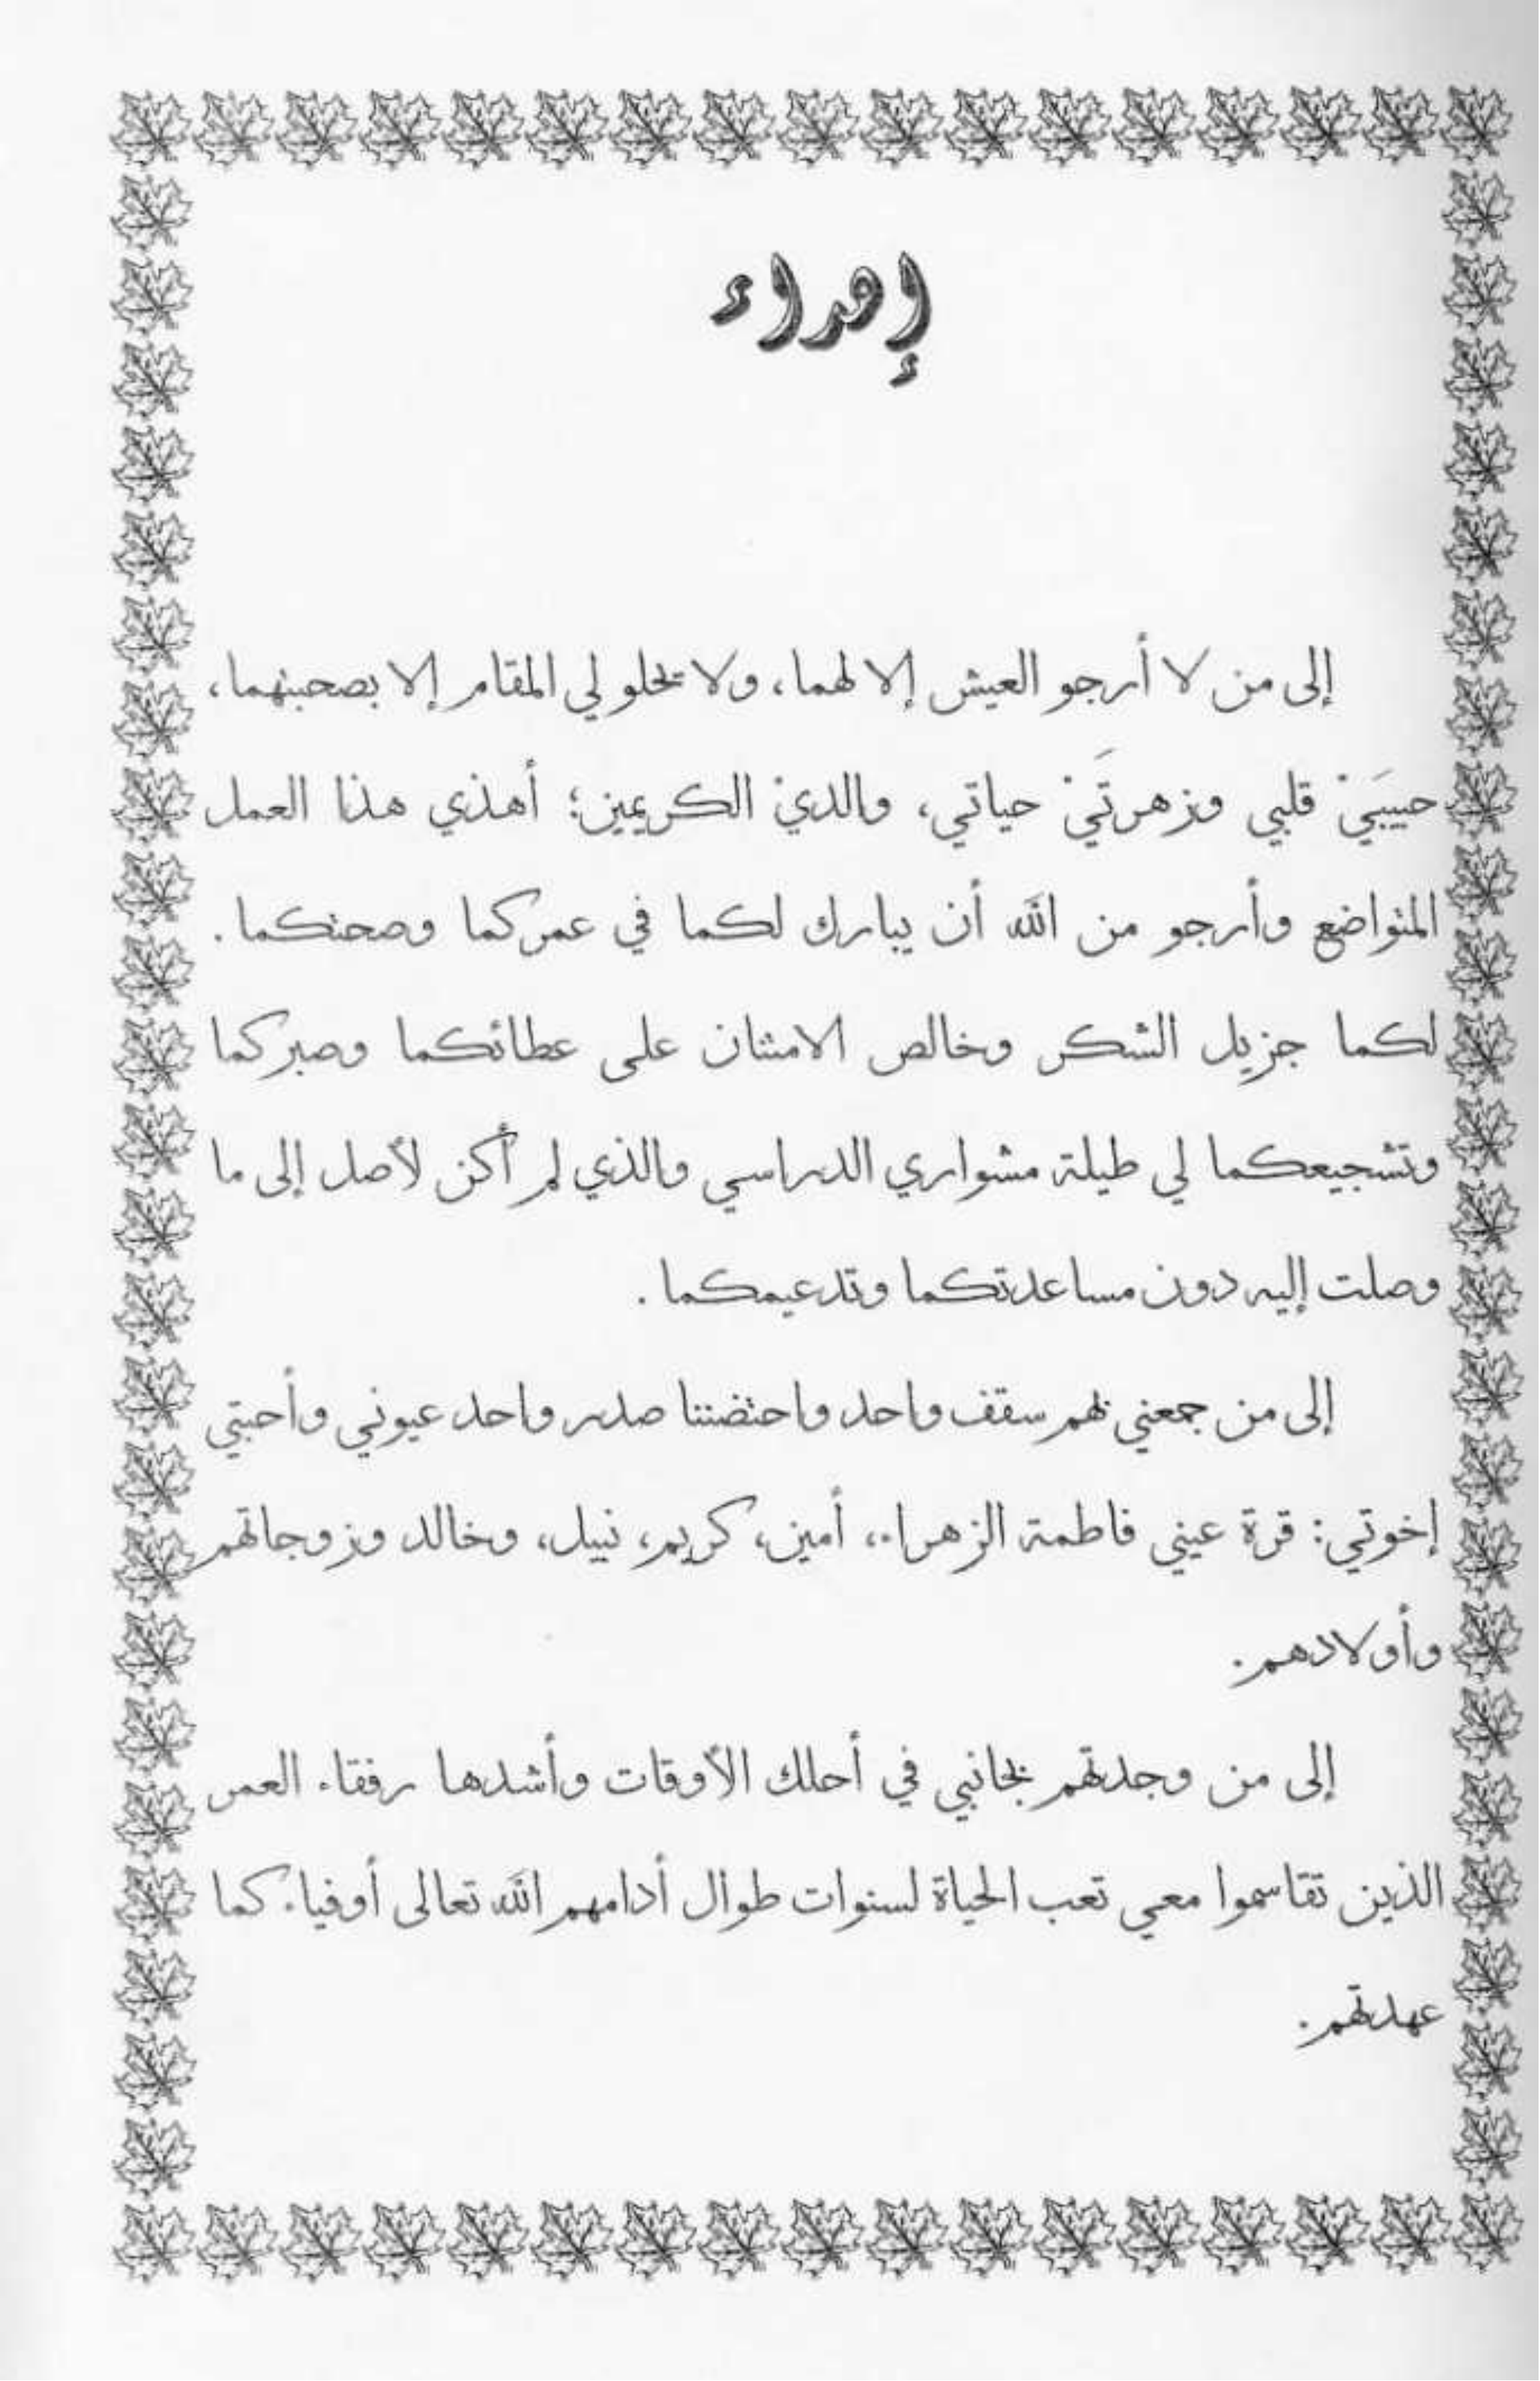 إهداء
إلى من لا أرجو العيش إلا لهما، ولا يحلو لي المقام إلا بصحبتهما،
حبيبَيْ قلبي وزهرتَيْ حياتي، والديْ الكريمين؛ أهذي هذا العمل
المتواضع وأرجو من الله أن يبارك لكما في عمركما وصحتكما.
لكما جزيل الشكر وخالص الامتنان على عطائكما وصبركما
وتشجيعكما لي طيلة مشواري الدراسي والذي لم أكن لأصل إلى ما
وصلت إليه دون مساعدتكما وتدعيمكما.
إلى من جمعني بهم سقف واحد واحتضننا صدر واحد عيوني وأحبتي
إخوتي: قرة عيني فاطمة الزهراء، أمين، كريم، نبيل، وخالد وزوجاتهم
وأولادهم.
إلى من وجدتهم بجانبي في أحلك الأوقات وأشدها رفقاء العمر
الذين تقاسموا معي تعب الحياة لسنوات طوال أدامهم الله تعالى أوفياء كما
عهدتهم.